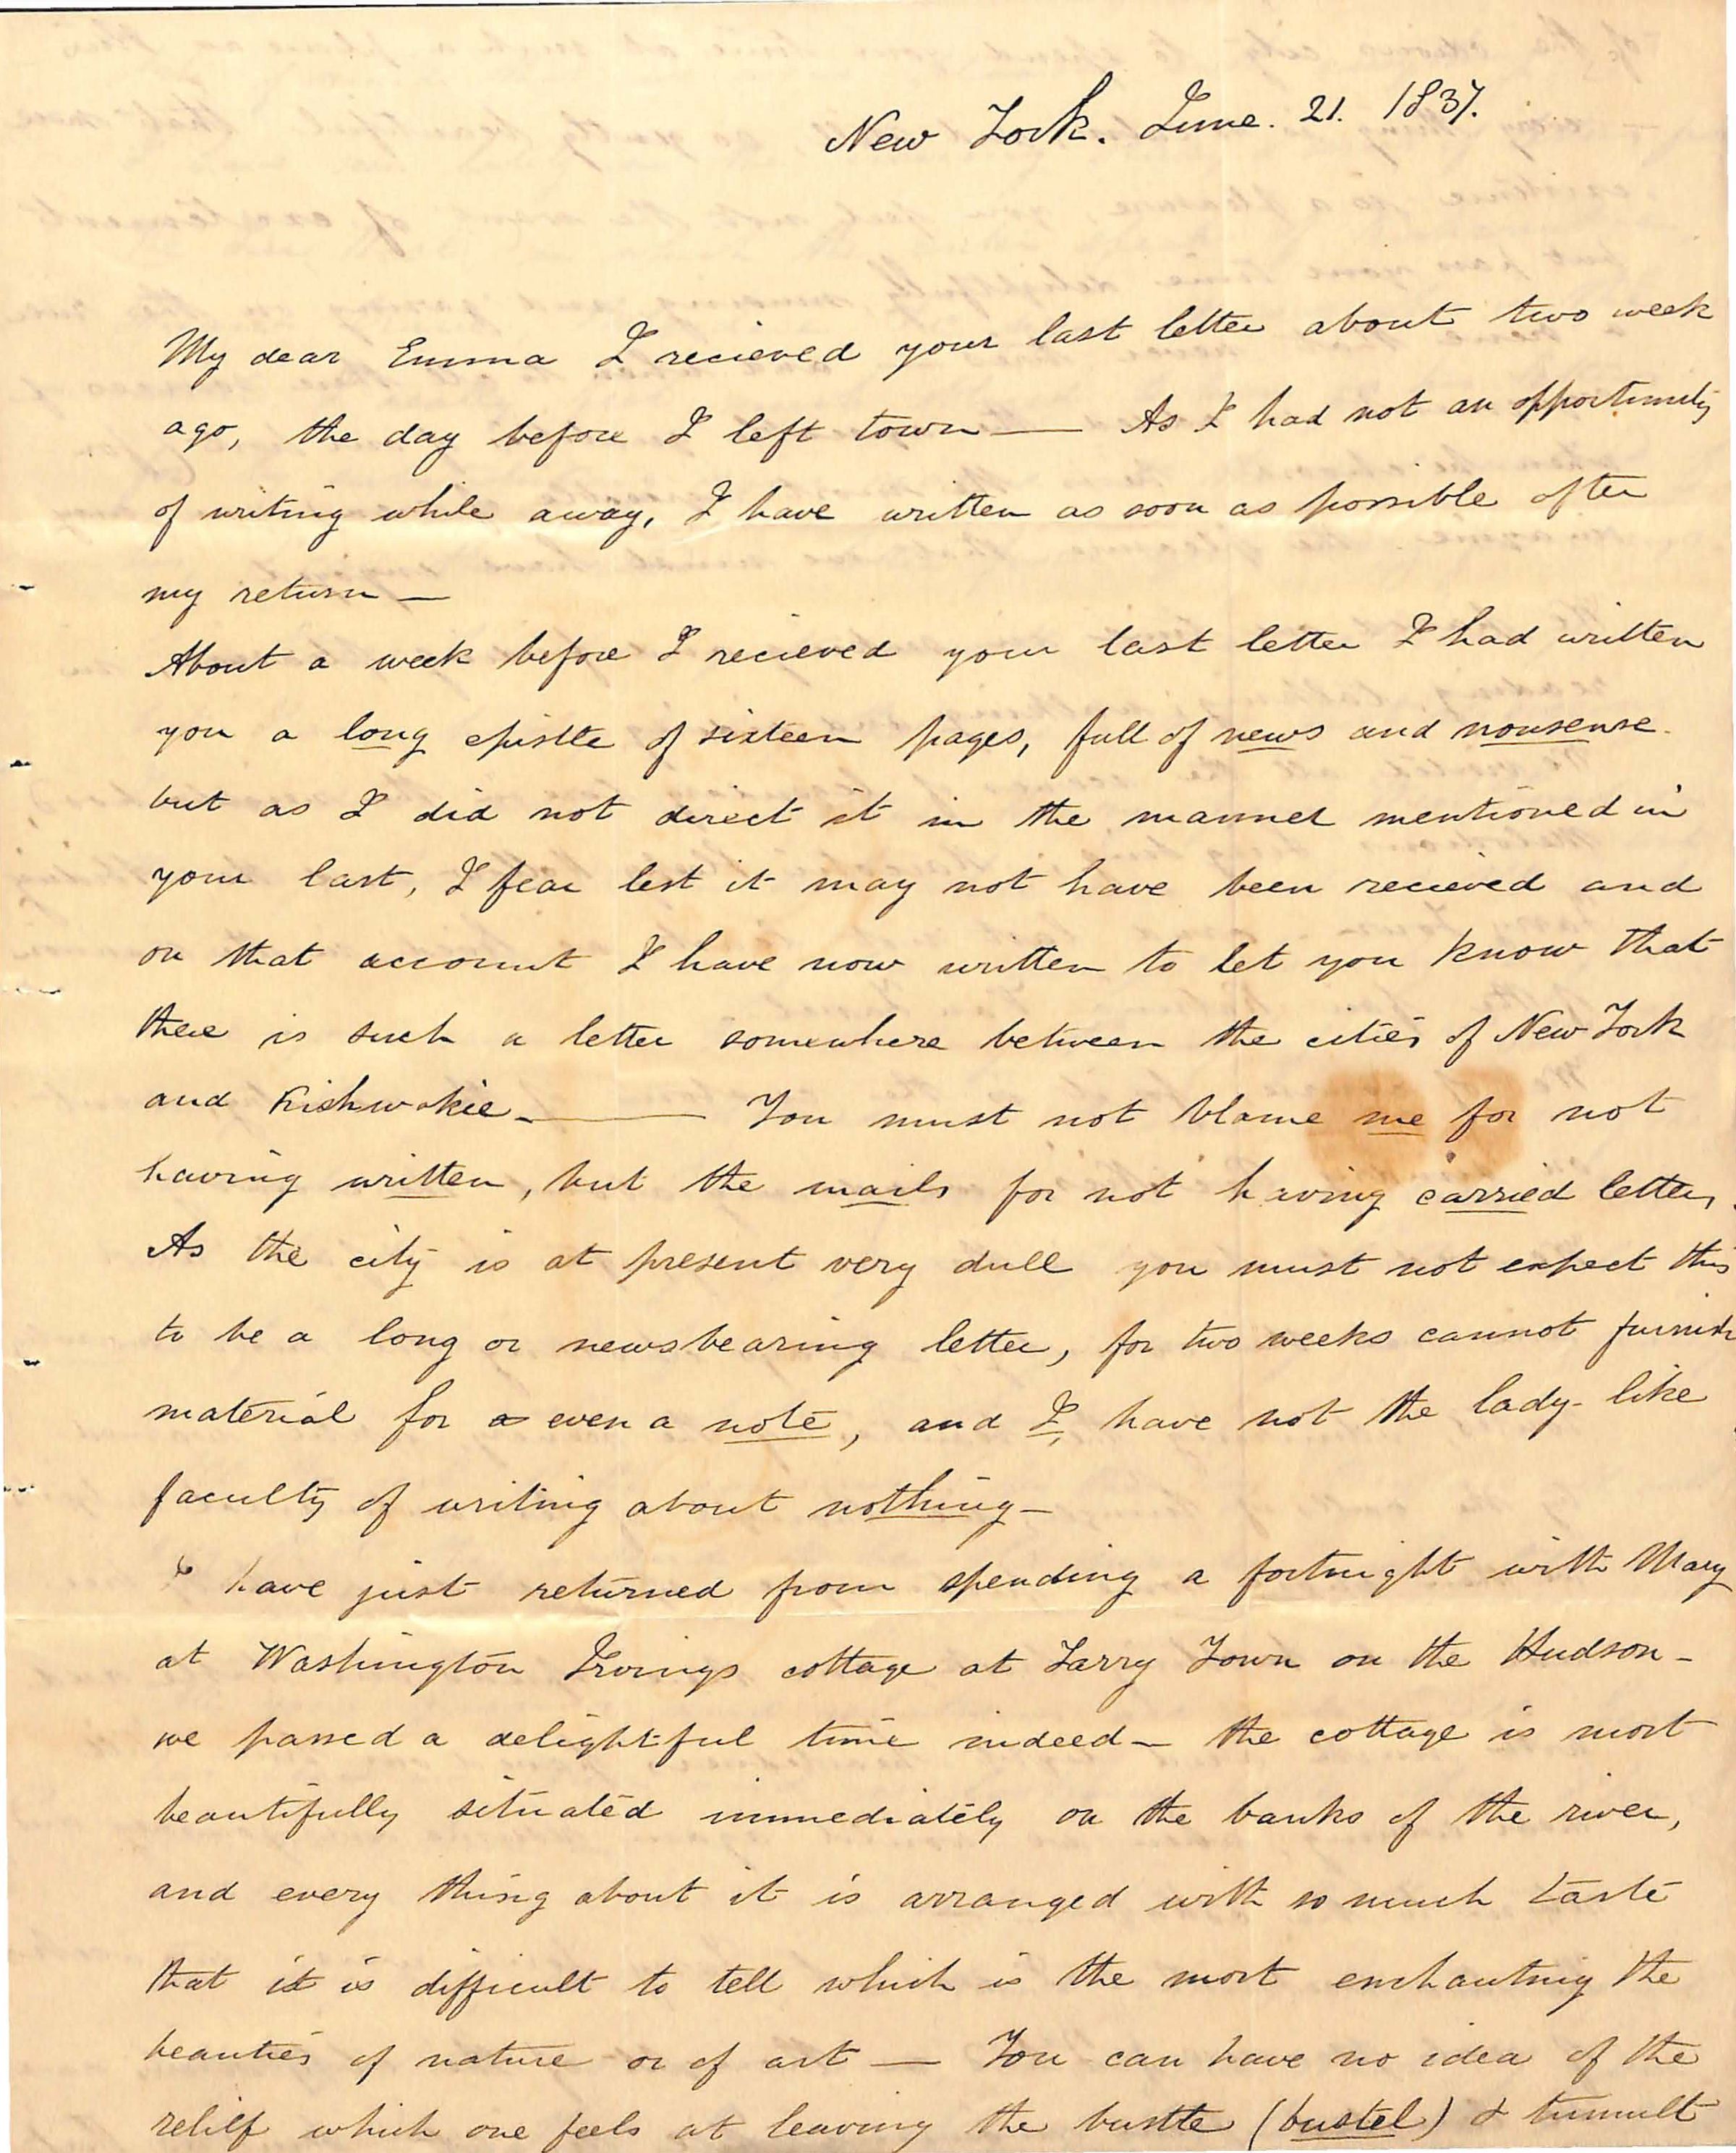 New York. June. 21. 1837.
My dear Emma I recieved your last letter about two week
ago, the day before I left town — As I had not an opportunity
of writing while away, I have written as soon as possible after
my return —
About a week before I recieved your last letter I had written
you a long epistle of sixteen pages, full of news and nonsense.
but as I did not direct it in the manner mentioned in
your last, I fear lest it may not have been recieved and
on that account I have now written to let you know that
there is such a letter somewhere between the cities of New York
and Kishwokie. — You must not blame me for not
having written, but the mails for not having carried letters.
As the city is at present very dull you must not expect this
to be a long or newsbearing letter, for two weeks cannot furnish
material for a even a note, and I, have not the lady-like
faculty of writing about nothing —
I have just returned from spending a fortnight with Mary
at Washington Irvings cottage at Tarry Town on the Hudson —
we passed a delightful time indeed — the cottage is most
beautifully situated immediately on the banks of the river,
and every thing about it is arranged with so much taste
that it is difficult to tell which is the most enchanting the
beauties of nature or of art — You can have no idea of the
relief which one feels at leaving the bustle (bustel) & tumult